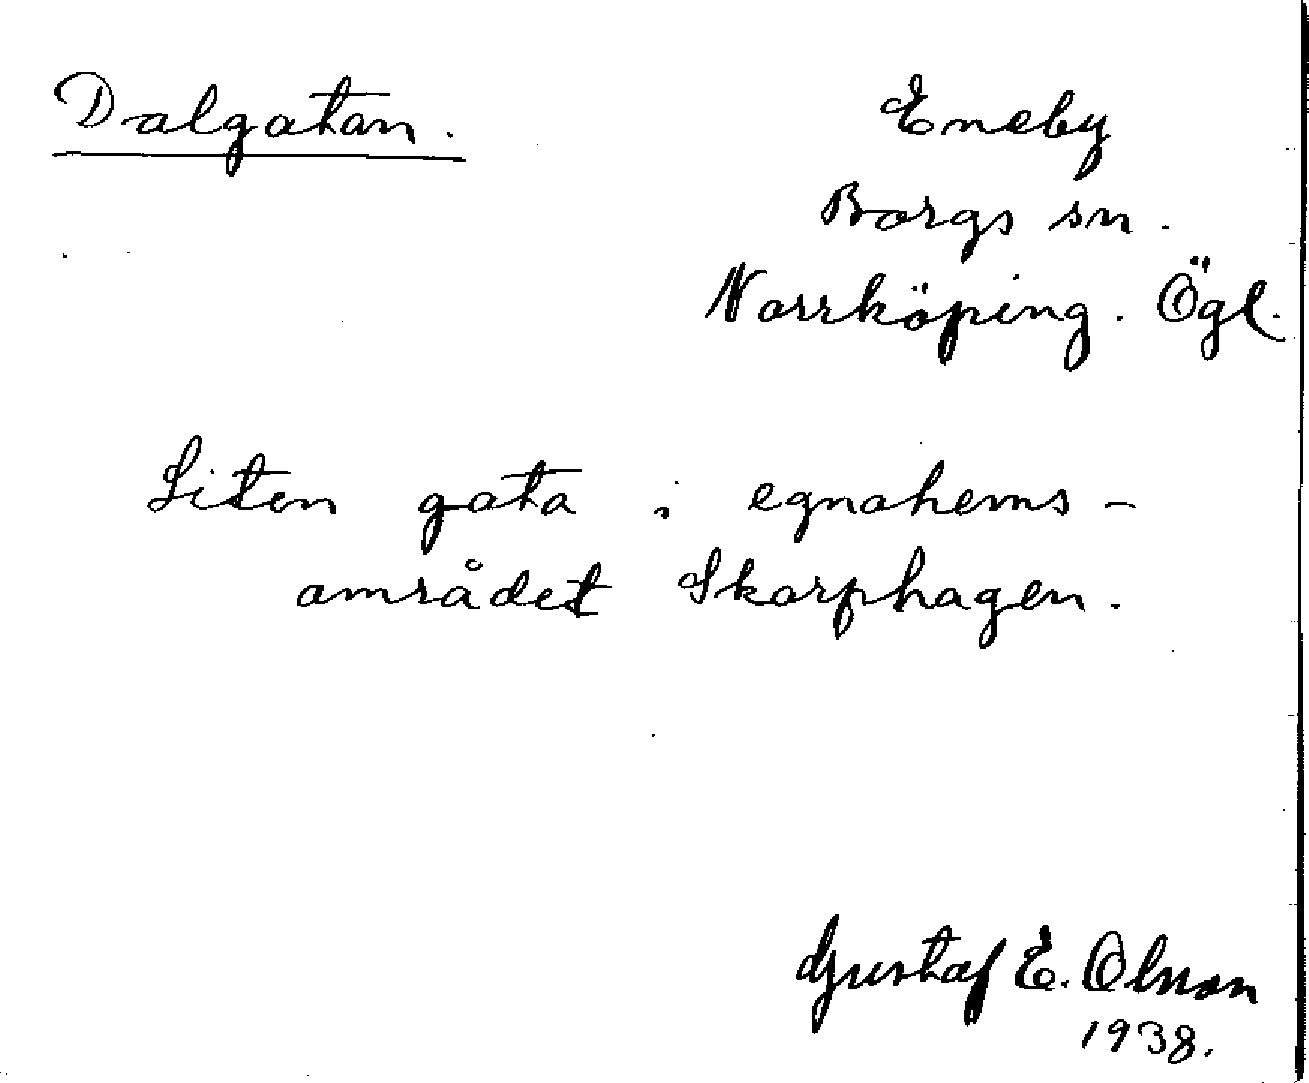 Dalgatan.
Eneby
Borgs sn.
Norrköping. Ögl.
Liten gata i egnahems-
området Skarphagen.
Gustaf E. Olsson
1938.